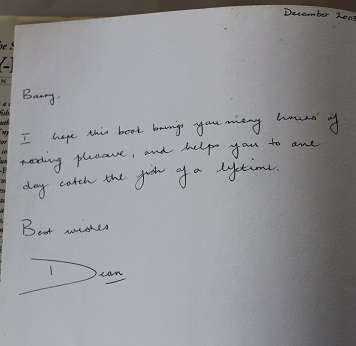 December 200
Barry,
I hope this book brings you many hours of
reading pleasure, and helps you to one
day catch the fish of a lifetime.
Best wishes
Dean